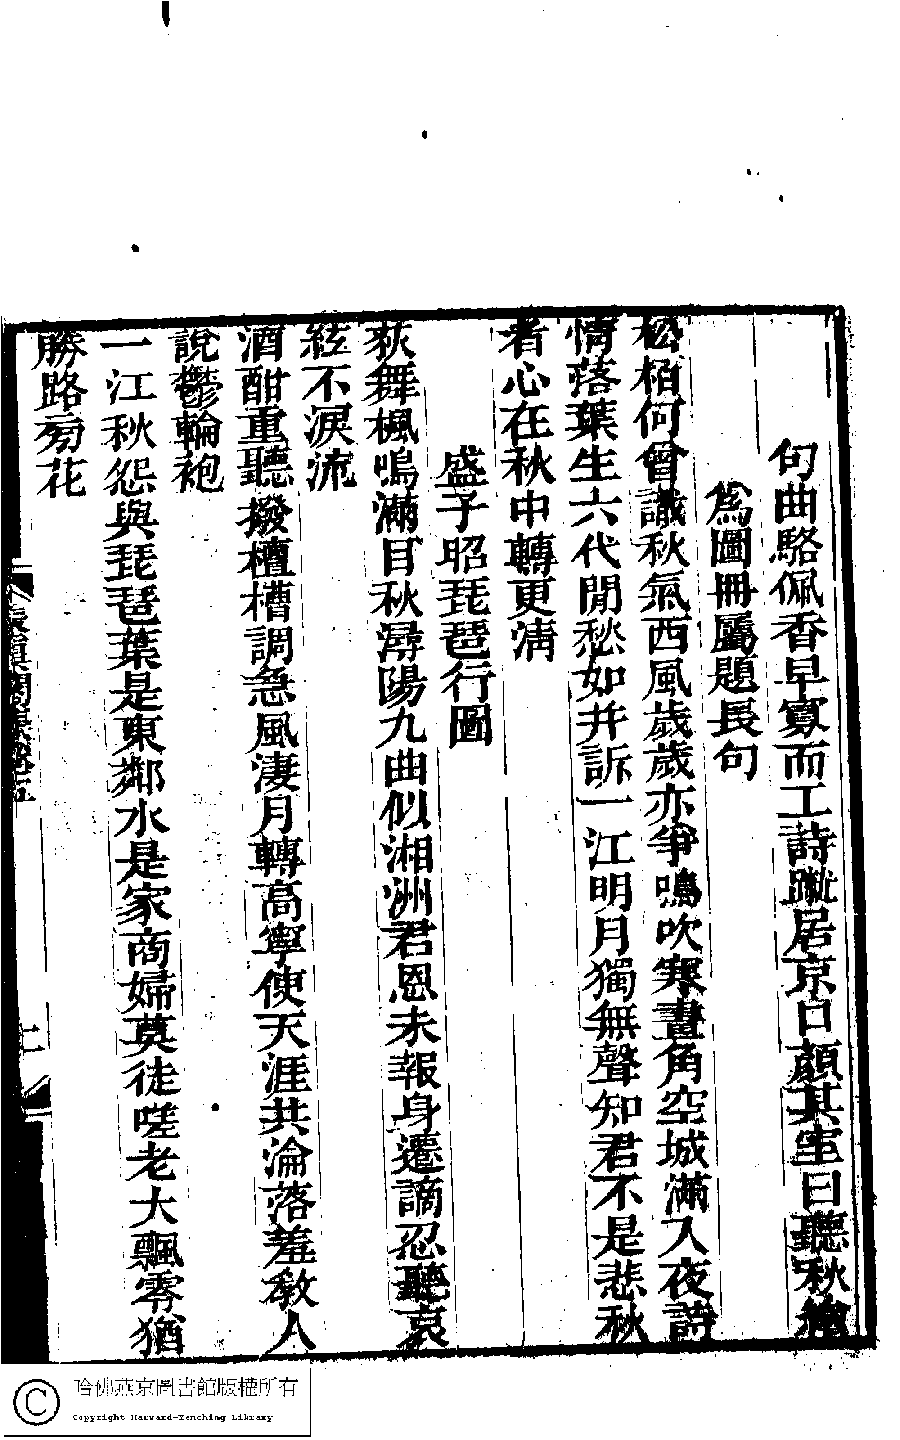 句曲駱佩香早寡而工詩蹴居京口顏其室曰聽秋
為圖冊屬題長句
松栢何曾識秋氣西風歲歲亦爭鳴吹寒畫角空城滿入夜詩
情落葉生六代閒愁如并訴一江明月獨無聲知君不是悲秋
者心在秋中轉更淸
盛子昭琵琶行圖
荻舞楓鳴滿目秋潯陽九曲似湘洲君恩未報身遷謫忍聽哀
絃不淚流
酒酣重聽撥檀槽調急風淒月轉高寧使天涯共淪落羞敎人
說鬱輪袍
一江秋怨與琵琶葉是東鄰水是家商婦莫徒嗟老大飄零猶
勝路旁花
長眞閣集卷五
哈佛燕京圖書館版權所有
Copyright Harvard-Yenching Library